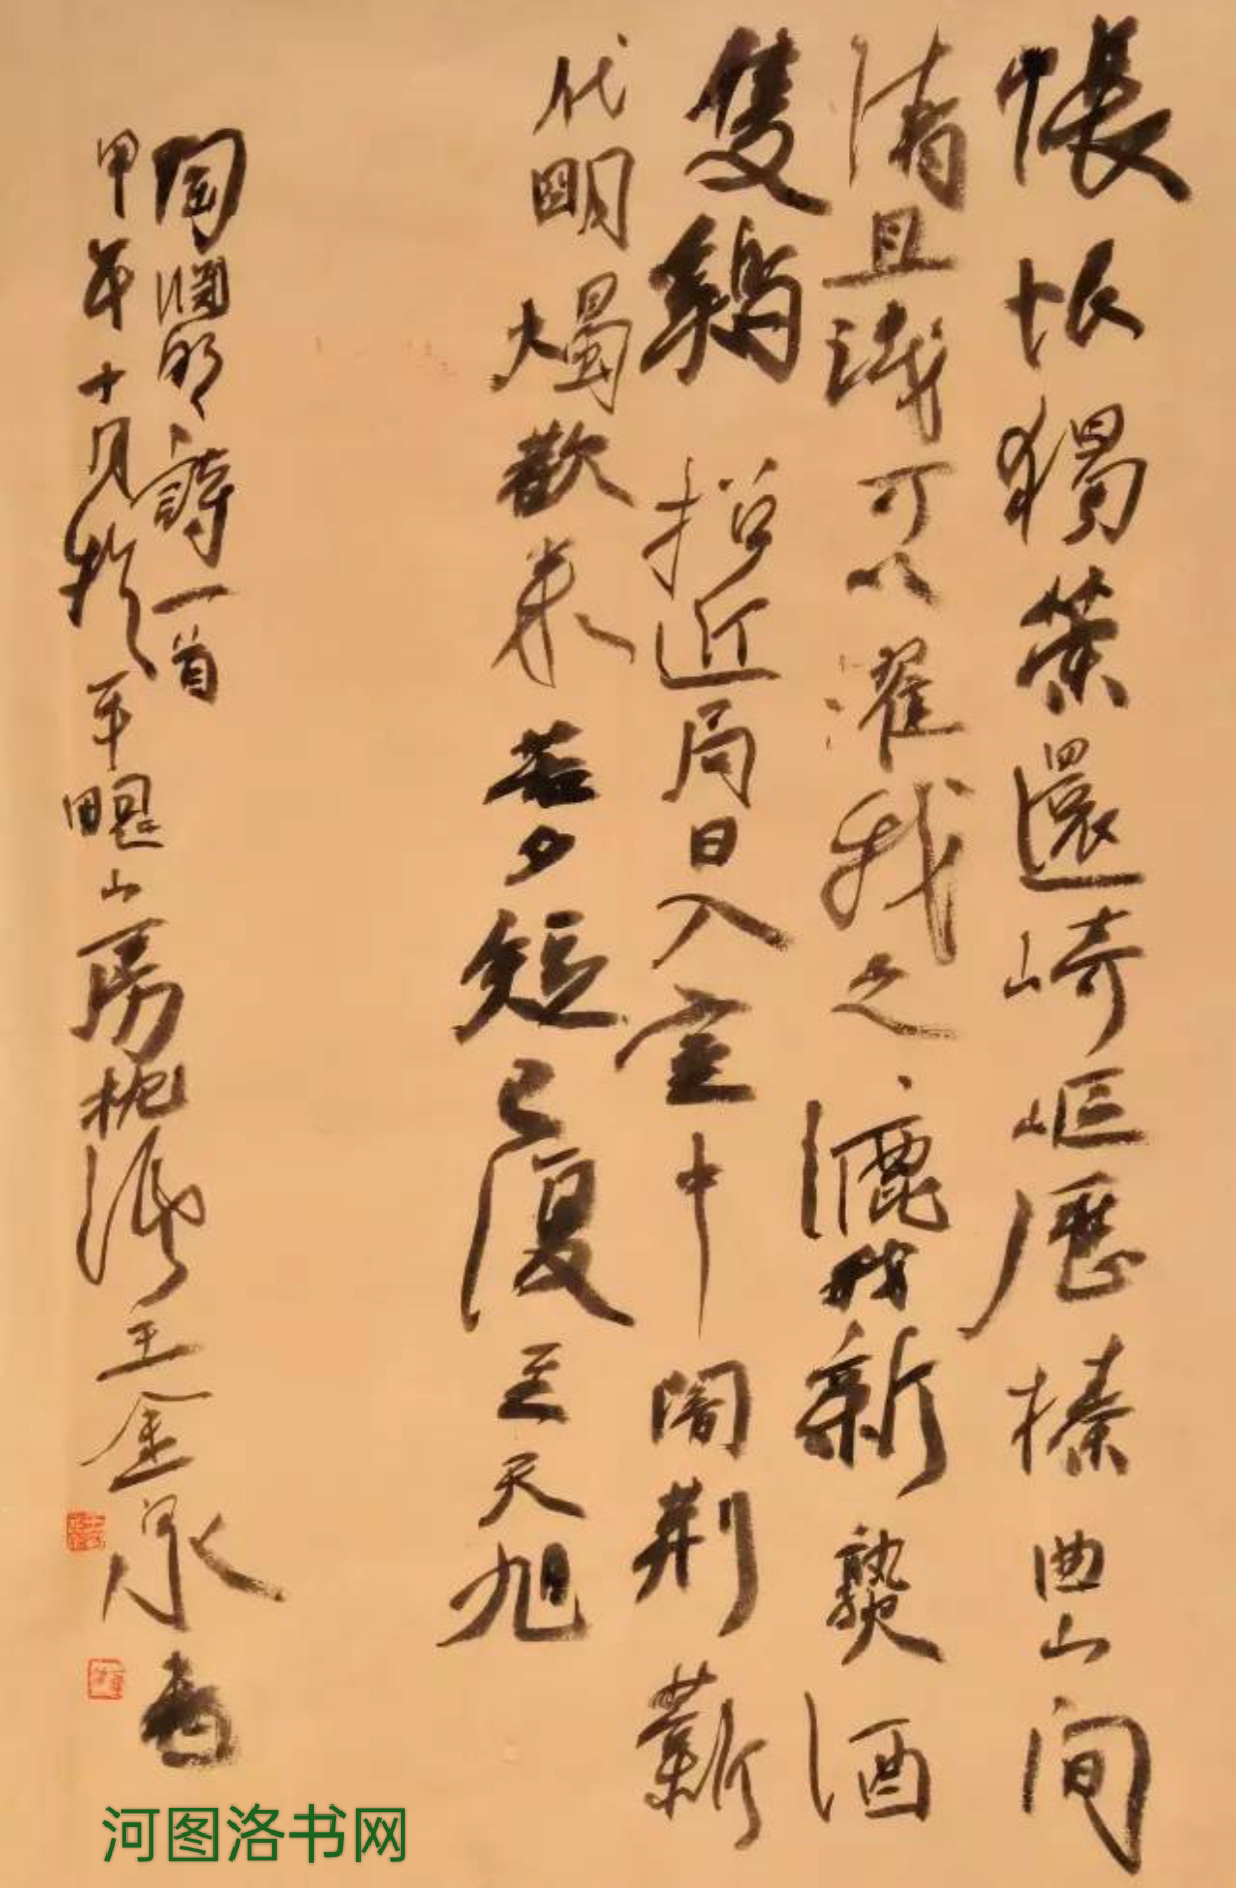 悵恨獨策還崎嶇歷榛曲山澗
清且淺可以濯我足漉我新熟酒
隻鷄招近局日入室中闇荊薪
代明燭歡来苦夕短已復至天旭
陶淵明詩一首
甲午十月於平山房枕濤王金泉書
河图洛书网